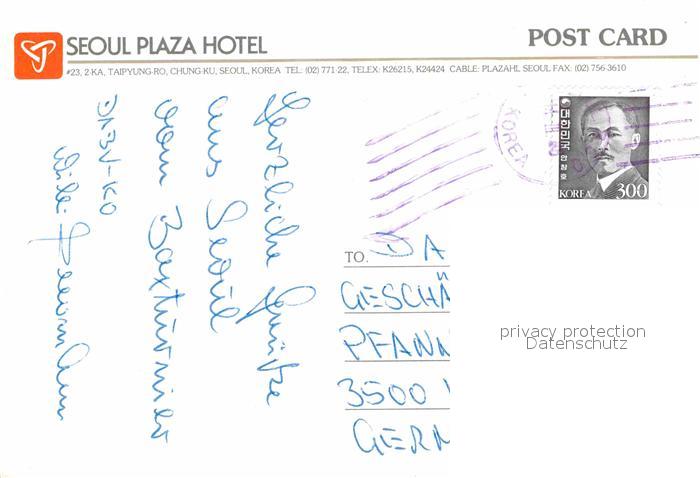 SEOUL PLAZA HOTEL
POST CARD
#23, 2-KA, TAIPYUNG-RO, CHUNG-KU, SEOUL, KOREA TEL: (02) 771-22, TELEX: K26215, K24424 CABLE: PLAZAHL SEOUL FAX: (02) 756-3610
Herzliche Grüße
aus Seoul
vom
KOREA
대한민국
안창호
KOREA 300
TO. DA
GESCHÄ
PFANN
3500
GERM
privacy protection
Datenschutz